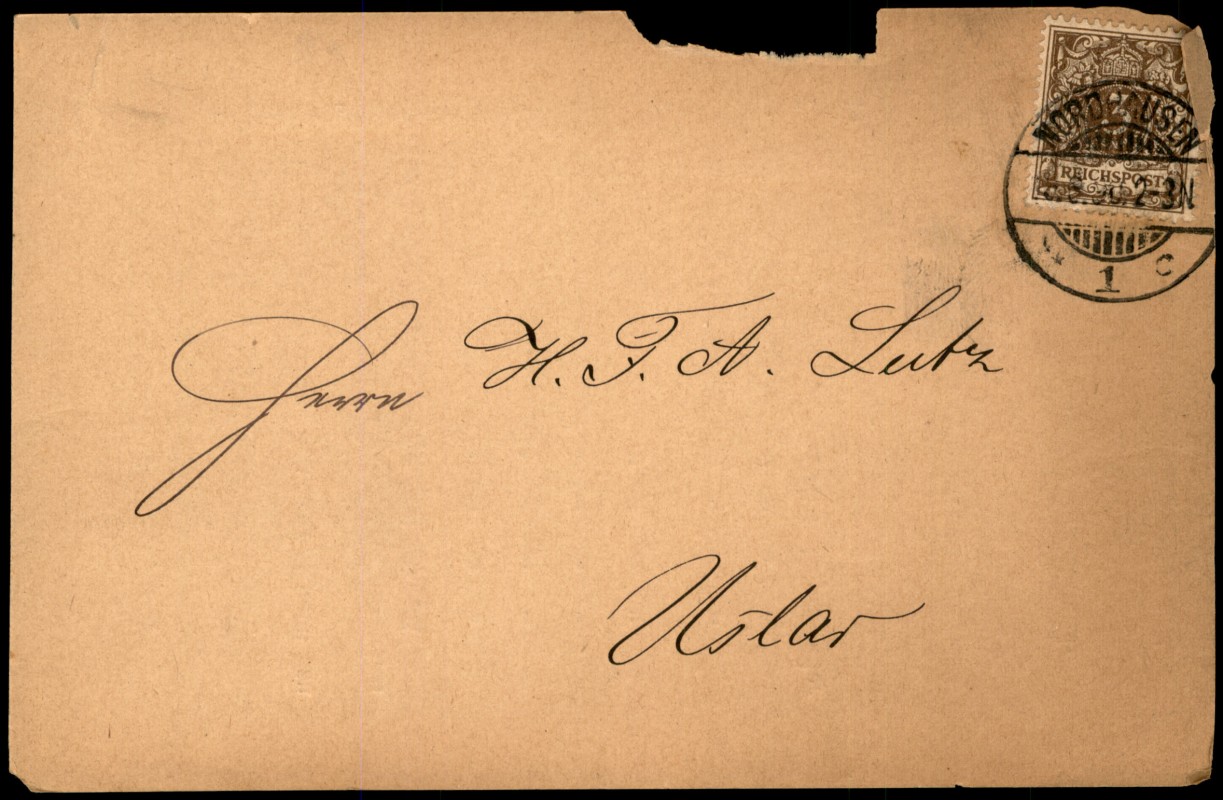 NORDHAUSEN
3
REICHSPOST
2-3N
1 c
Herrn H. F. A. Lutz
Uslar